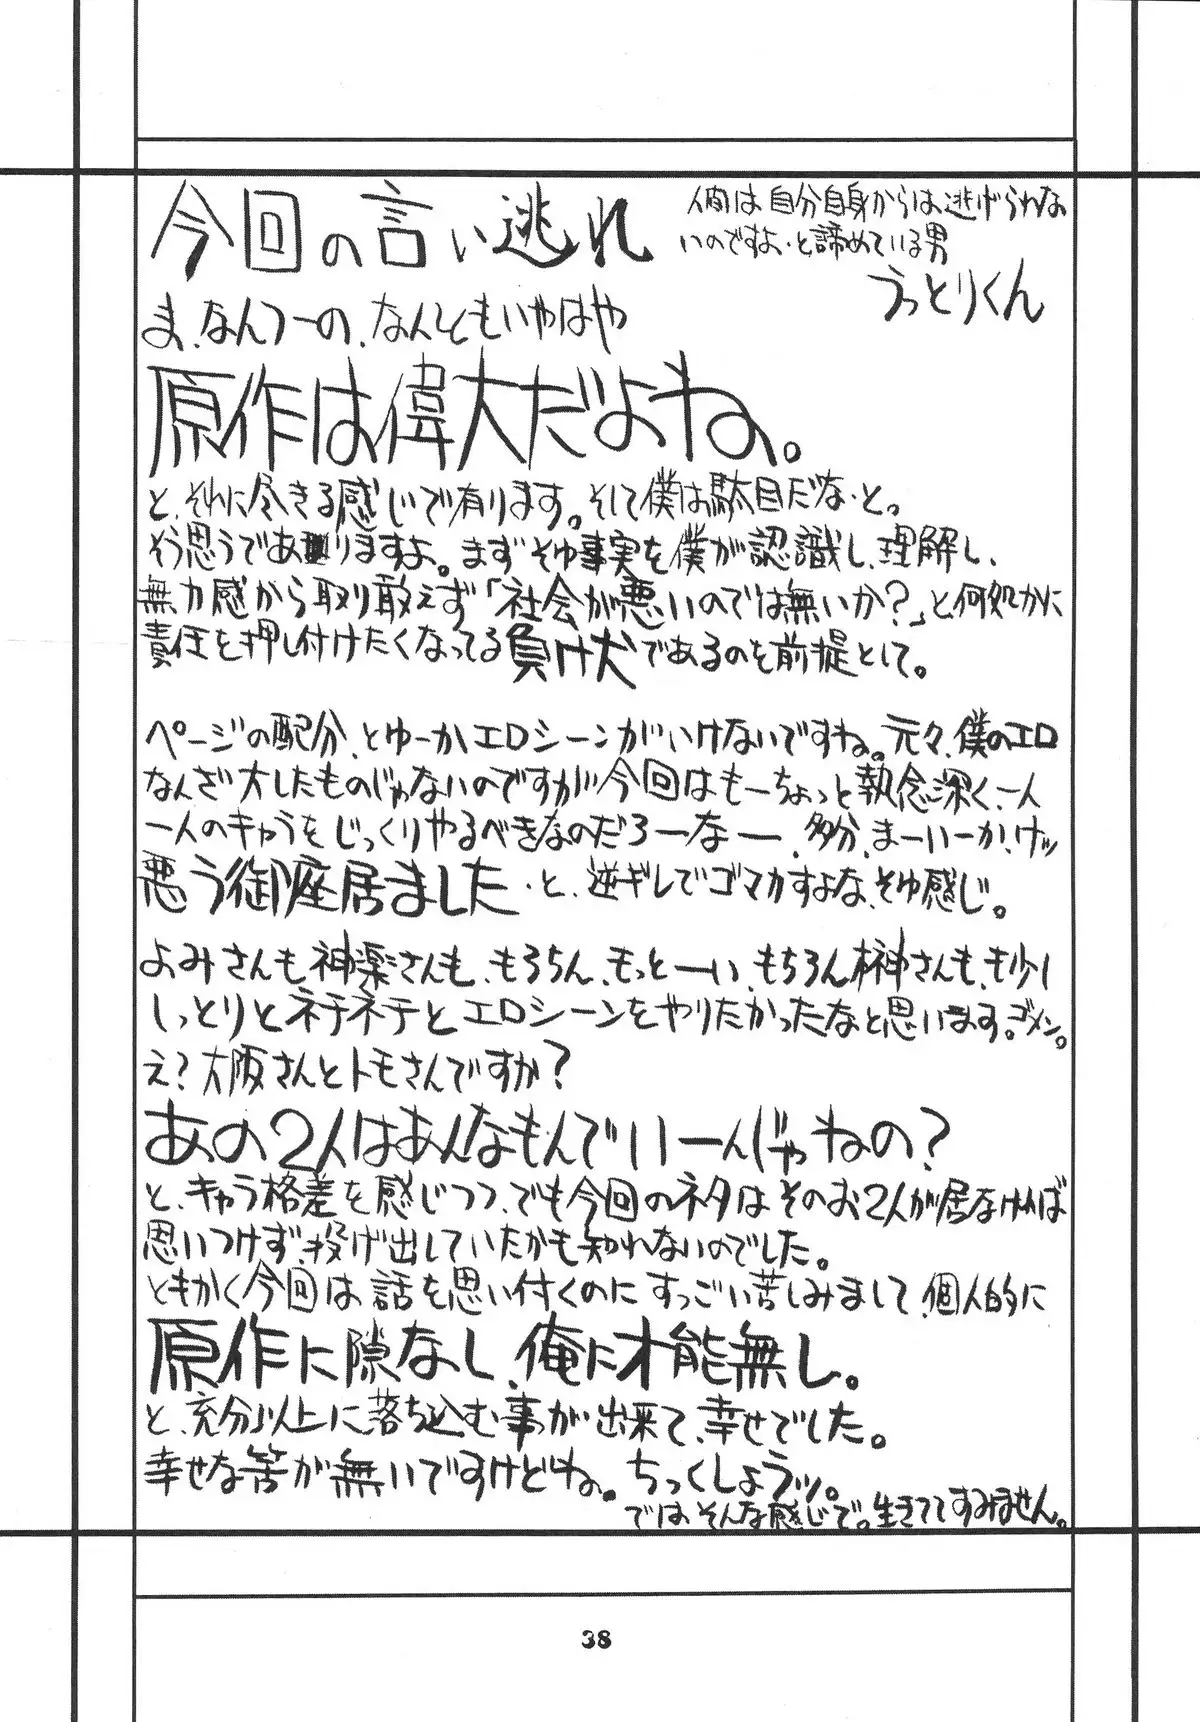 今回の言い逃れ
人間は自分自身からは逃げられな
いのですよ・と諦めている男
うっとりくん
ま、なんつーの、なんともいやはや
原作は偉大だよね。
と、それに尽きる感じで有ります。そして僕は駄目だな・と。
そう思うでありますよ。まずその事実を僕が認識し、理解し、
無力感から取り敢えず「社会が悪いのでは無いか？」と何処かに
責任を押し付けたくなってる負け犬であるのを前提として。
ページの配分、とゆーかエロシーンがいけないですね。元々、僕のエロ
なんざ大したものじゃないのですが今回はもーちょっと執念深く、一人
一人のキャラをじっくりやるべきなのだろーなー、多分、まーいーか、けッ
悪う御座居ました・と、逆ギレでゴマカすよな、そゆ感じ。
よみさんも神楽さんも、もろちん、もっとーい、もちろん榊さんも、も少し
しっとりとネチネチとエロシーンをやりたかったなと思います。ゴメン。
え？大阪さんとトモさんですか？
あの2人はあんなもんでいーんじゃねの？
と、キャラ格差を感じつつ、でも今回のネタはそのお2人が居なければ
思いつけず投げ出していたかも知れないのでした。
ともかく今回は話を思い付くのにすっごい苦しみまして、個人的に
原作に隙なし、俺に才能無し。
と、充分以上に落ち込む事が出来て、幸せでした。
幸せな筈が無いですけどね。ちっくしょうッ。
では、そんな感じで。生きててすみません。
38